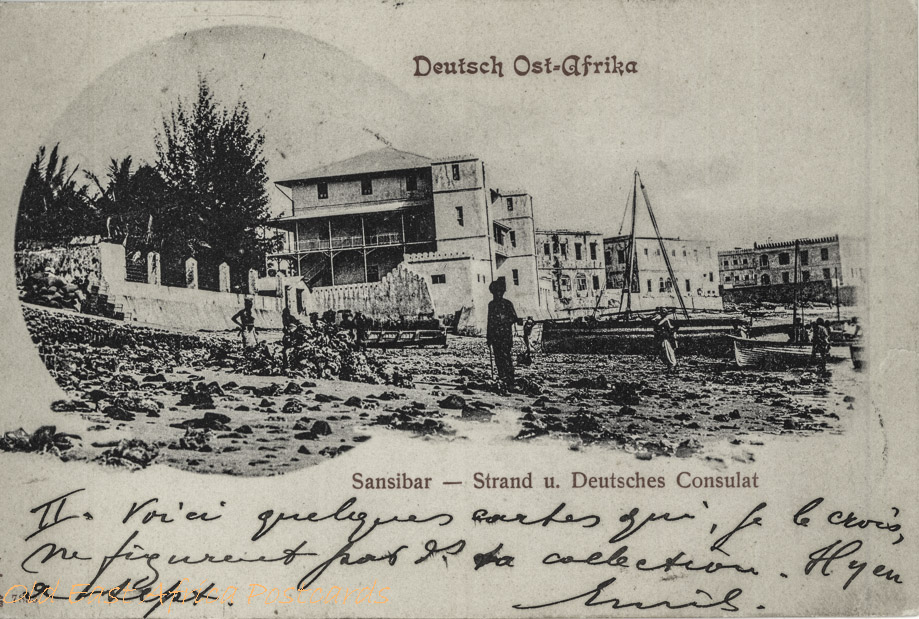 Deutsch Ost-Afrika
Sansibar — Strand u. Deutsches Consulat
II. Voici quelques cartes qui, je le crois,
ne figurent pas ds ta collection. Il y en
a sept. Emile.
Old East Africa Postcards